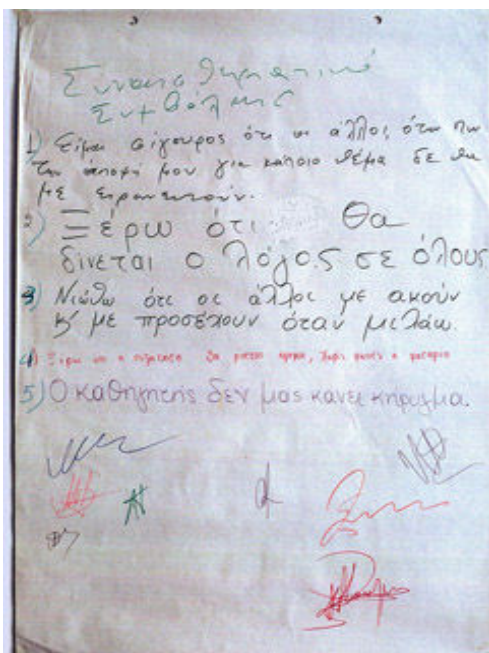 Συναισθηματικό
Συμβόλαιο
1) Είμαι σίγουρος ότι οι άλλοι όταν πω
την άποψή μου για κάποιο θέμα δε θα
με ειρωνευτούν.
2) Ξέρω ότι Θα
δίνεται ο λόγος σε όλους
3) Νιώθω ότι οι άλλοι με ακούν
κ' με προσέχουν όταν μιλάω.
4) Ξέρω ότι η συζήτηση θα γίνεται ήρεμα, χωρίς φωνές
5) Ο καθηγητής δεν μας κάνει κήρυγμα.